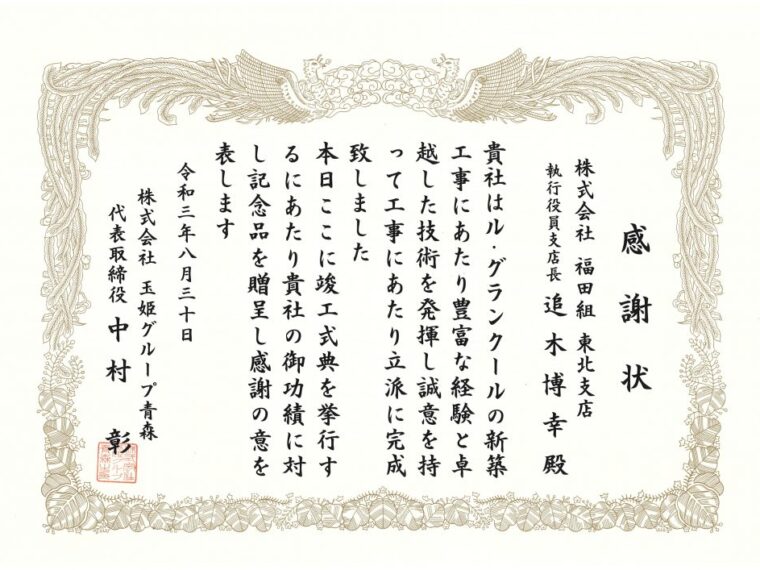 感謝状
株式会社 福田組 東北支店
執行役員支店長 追木博幸 殿
貴社はル・グランクールの新築
工事にあたり豊富な経験と卓
越した技術を発揮し誠意を持
って工事にあたり立派に完成
致しました
本日ここに竣工式典を挙行す
るにあたり貴社の御功績に対
し記念品を贈呈し感謝の意を
表します
令和三年八月三十日
株式会社 玉姫グループ青森
代表取締役 中村 彰